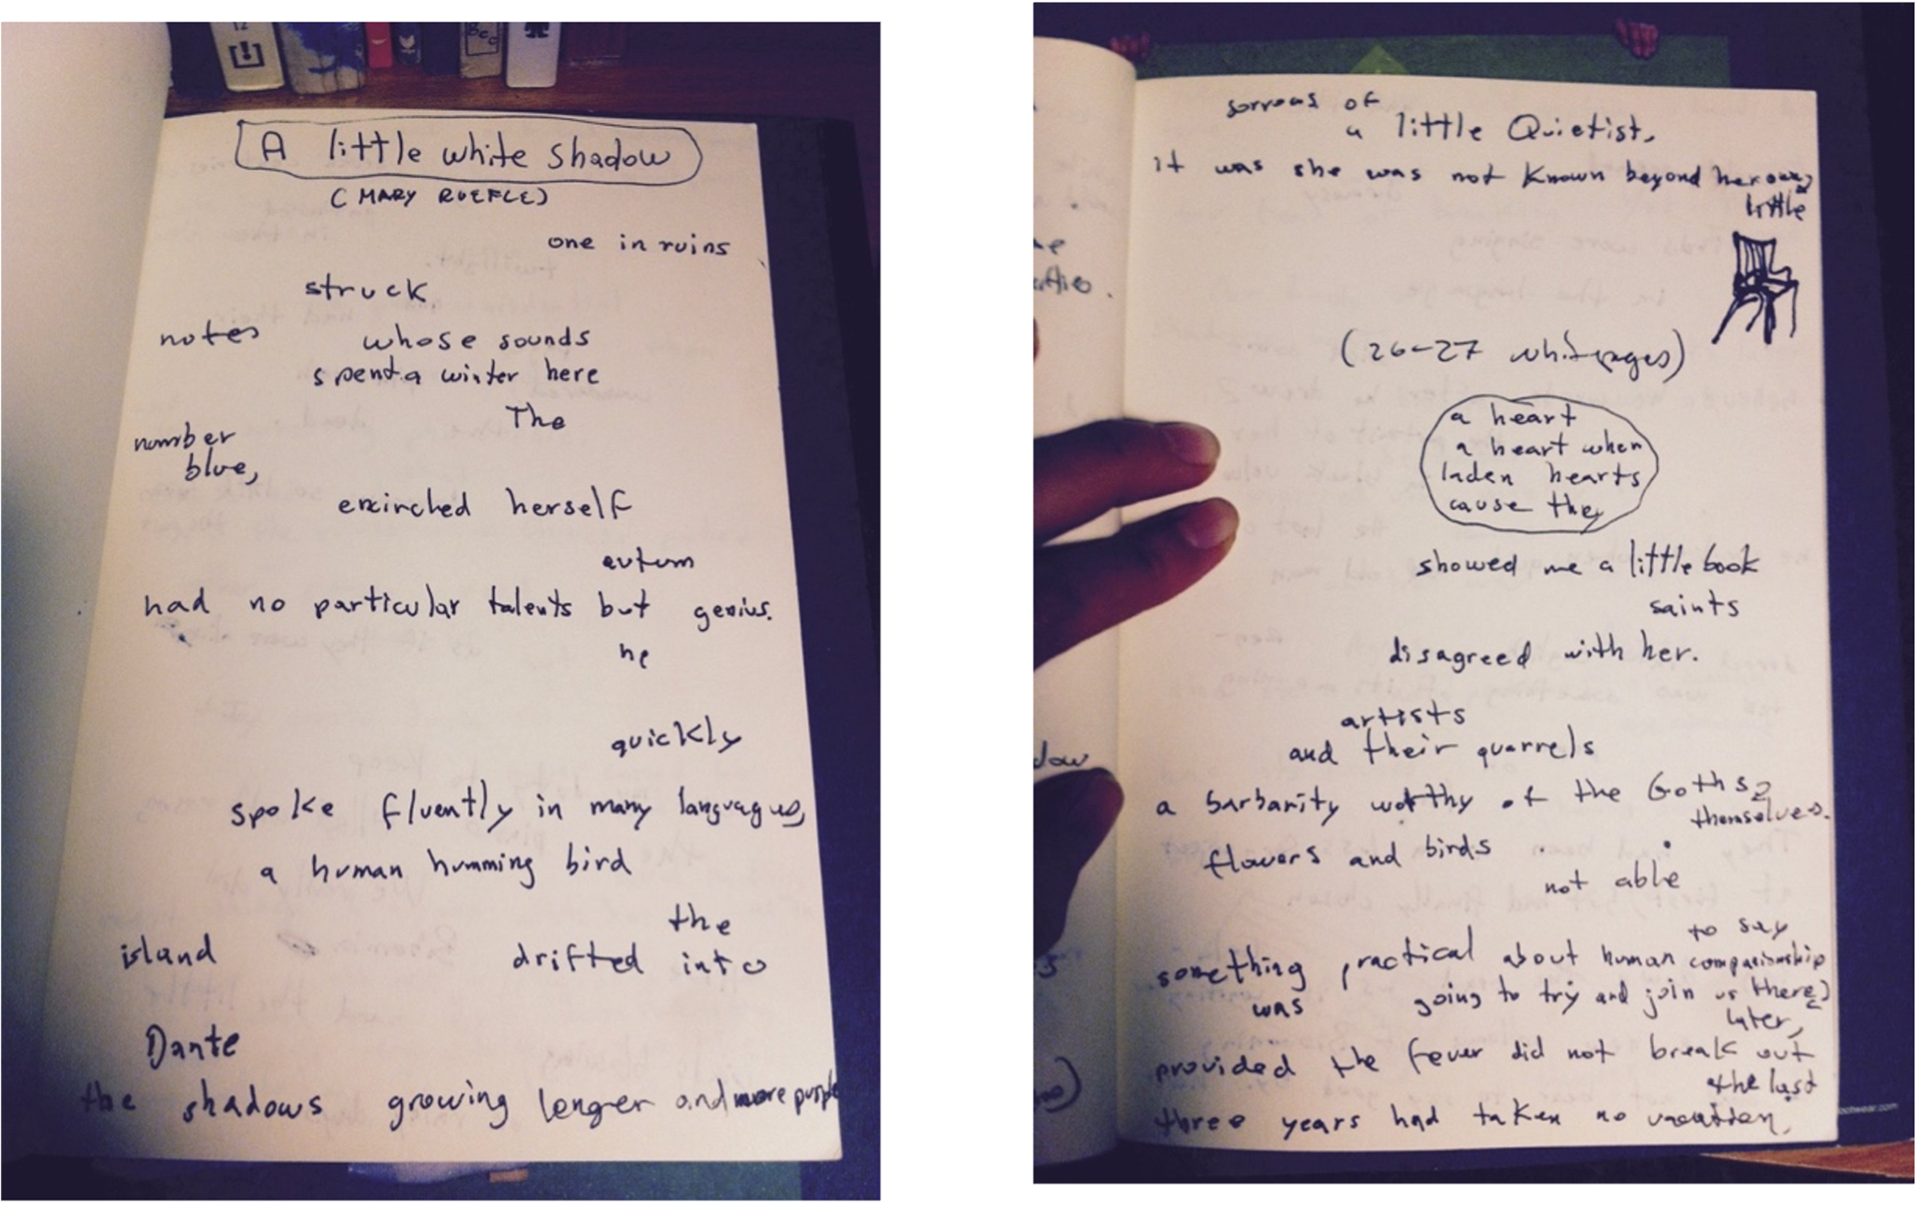 A little white shadow
(MARY RUEFLE)
one in ruins
struck
notes whose sounds
spent a winter here
The
number
blue,
encircled herself
autum
had no particular talents but genius.
he
quickly
spoke fluently in many languages,
a human humming bird
the
island drifted into
Dante
the shadows growing longer and more purple
sorrows of
a little Quietist.
it was she was not known beyond her own
little
(26-27 white pages)
a heart
a heart when
laden hearts
cause they
showed me a little book
saints
disagreed with her.
artists
and their quarrels
a barbarity worthy of the Goths
themselves.
flowers and birds
not able
to say
something practical about human companionship
was going to try and join us there
later,
provided the fever did not break out
the last
three years had taken no vacation,